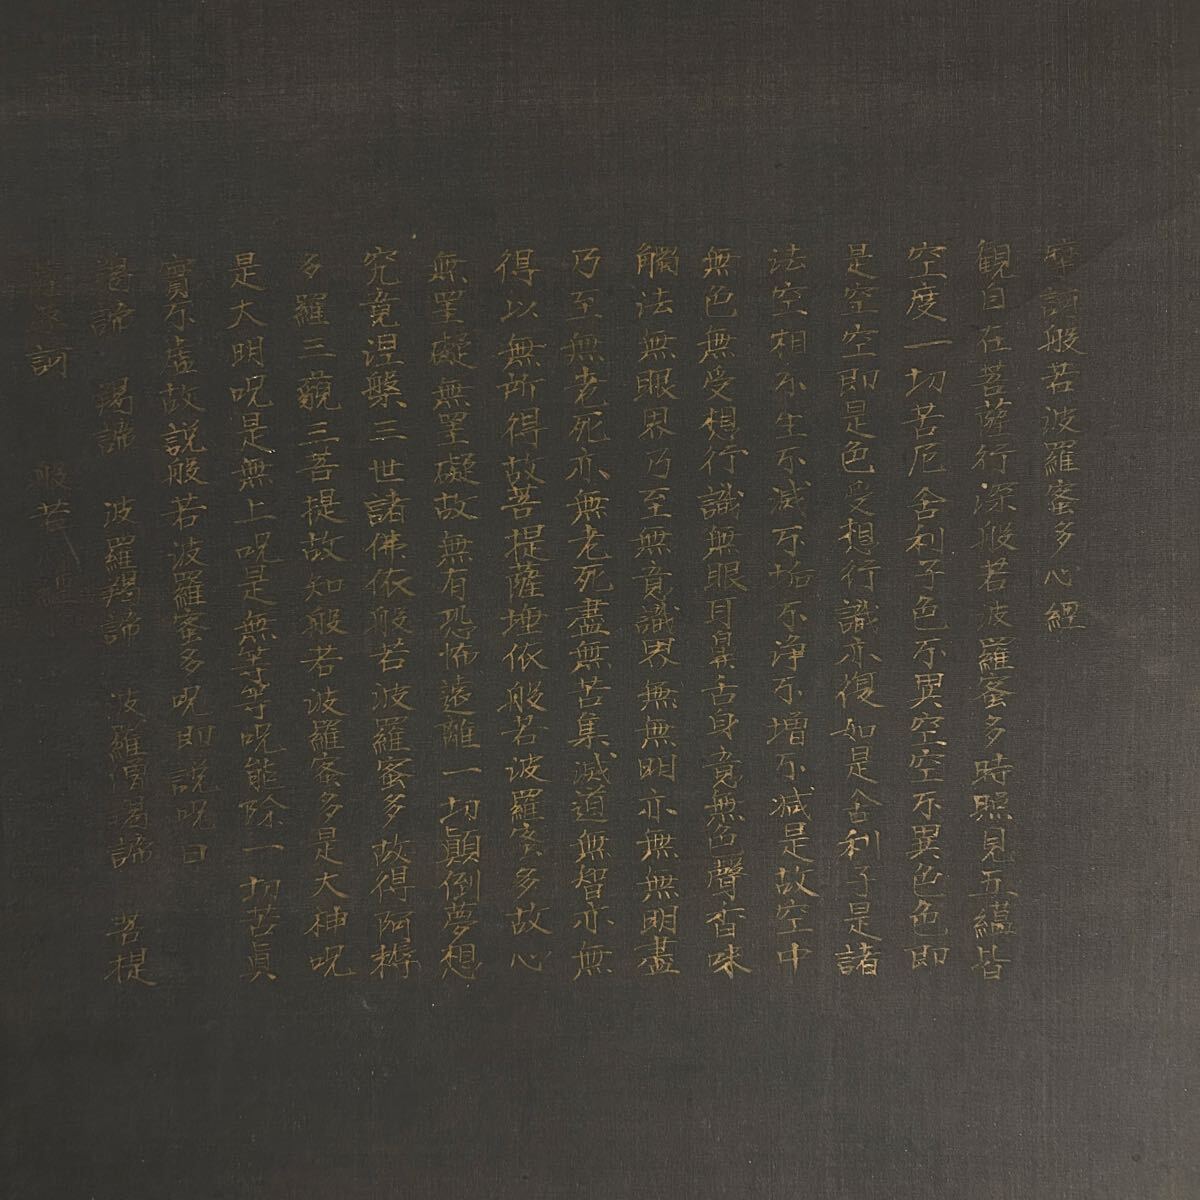 摩訶般若波羅蜜多心經
観自在菩薩行深般若波羅蜜多時照見五蘊皆
空度一切苦厄舍利子色不異空空不異色色即
是空空即是色受想行識亦復如是舍利子是諸
法空相不生不滅不垢不淨不增不減是故空中
無色無受想行識無眼耳鼻舌身意無色聲香味
觸法無眼界乃至無意識界無無明亦無無明盡
乃至無老死亦無老死盡無苦集滅道無智亦無
得以無所得故菩提薩埵依般若波羅蜜多故心
無罣礙無罣礙故無有恐怖遠離一切顛倒夢想
究竟涅槃三世諸佛依般若波羅蜜多故得阿耨
多羅三藐三菩提故知般若波羅蜜多是大神呪
是大明呪是無上呪是無等等呪能除一切苦真
實不虛故説般若波羅蜜多呪即説呪曰
揭諦 揭諦 波羅揭諦 波羅僧揭諦 菩提
薩婆訶 般若心經